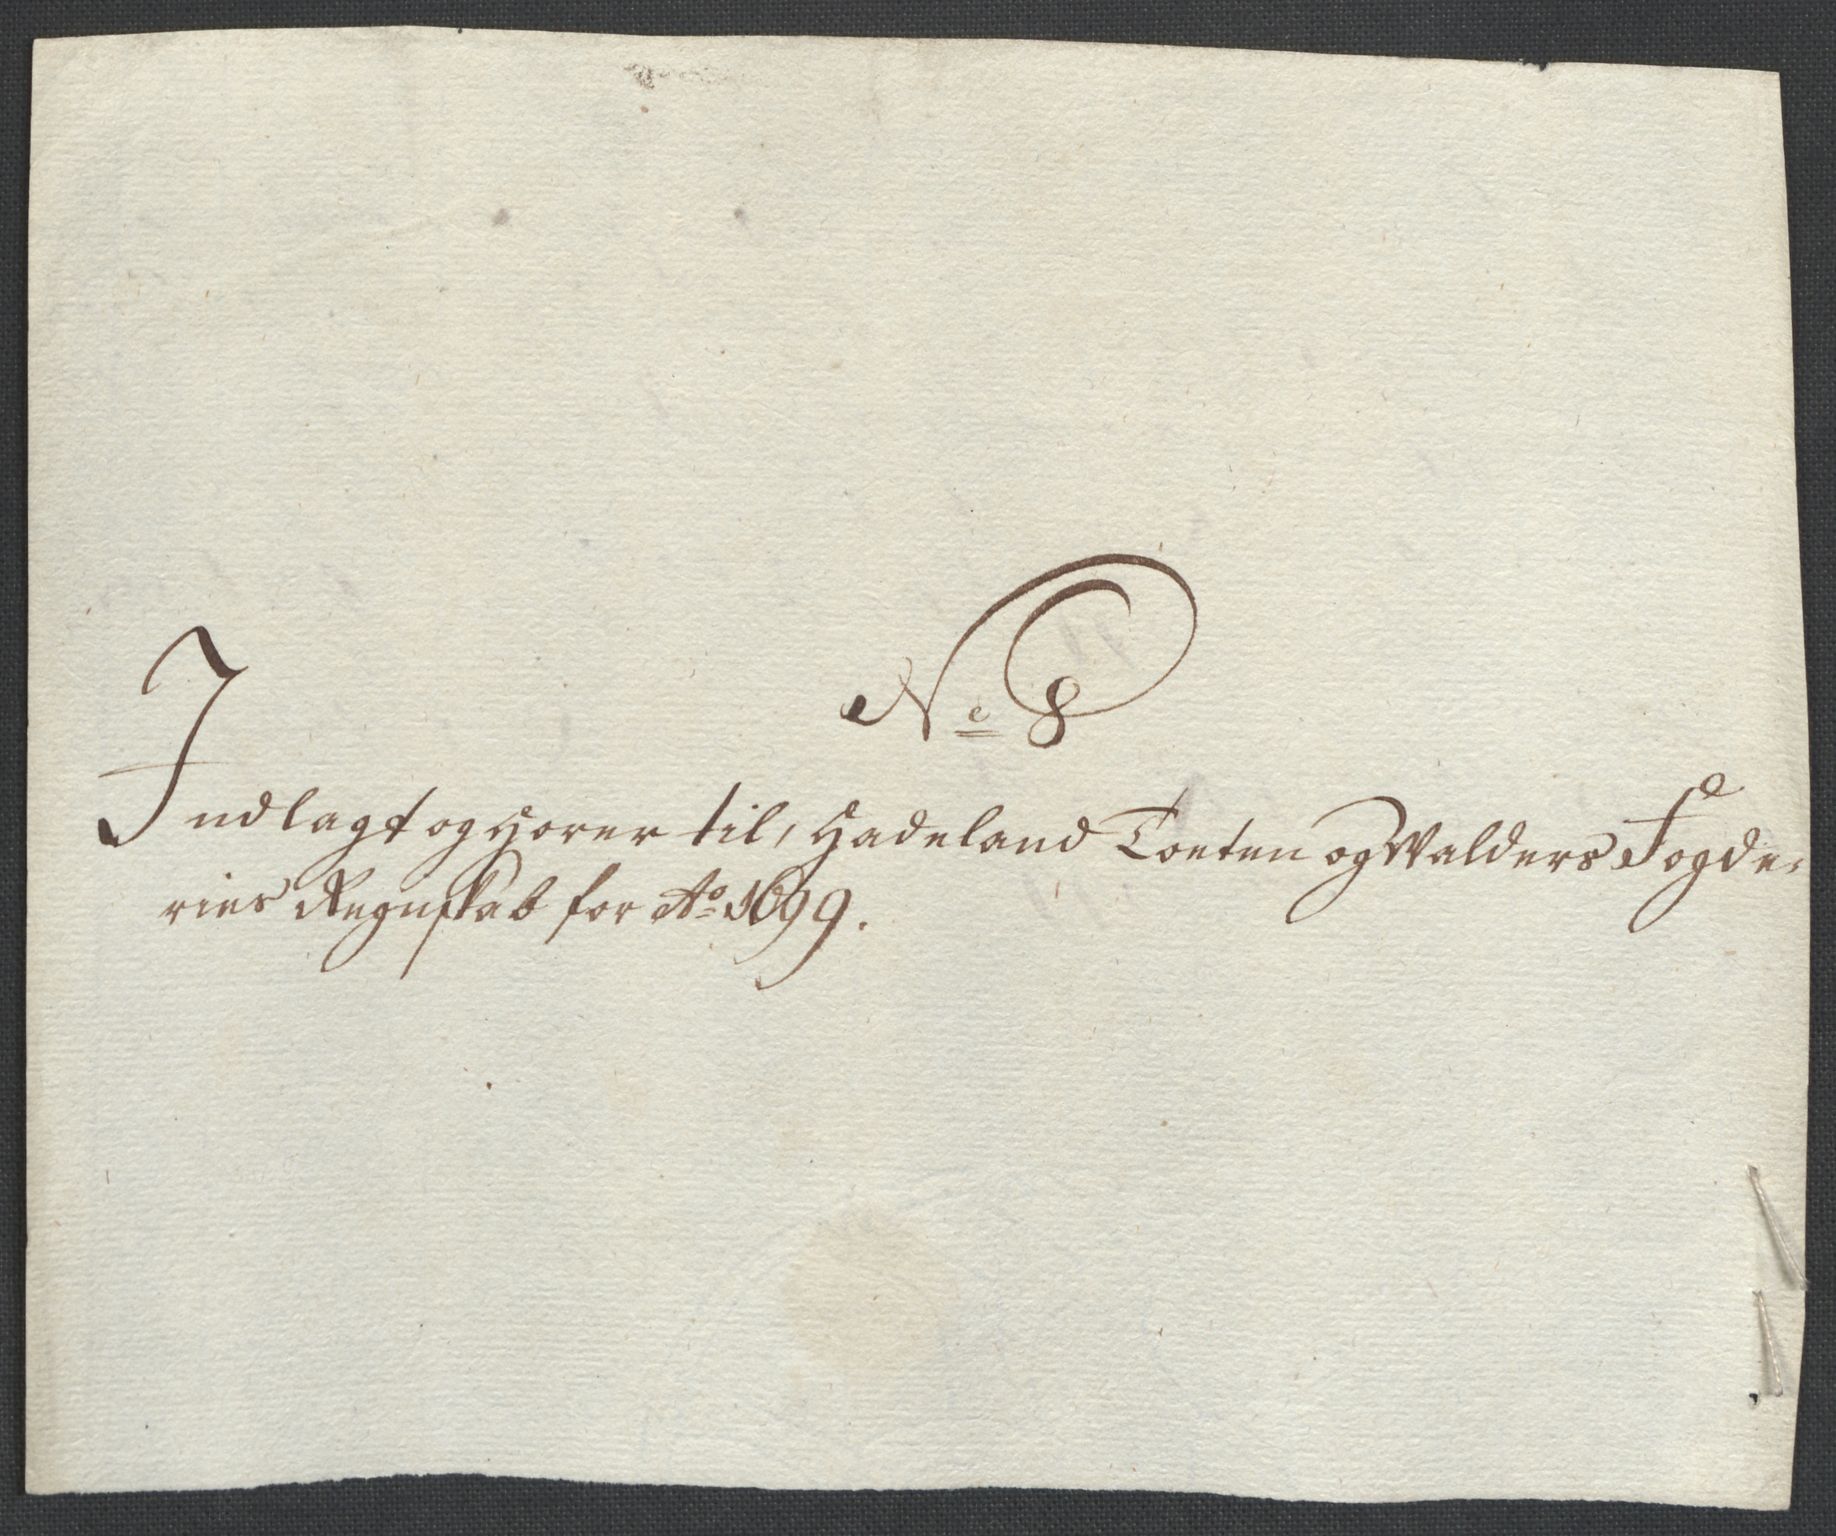 No 8
Indlagt og Hører til, Hadeland Toeten og Walders Fogde,
ries Regnskab for Ao 1699.